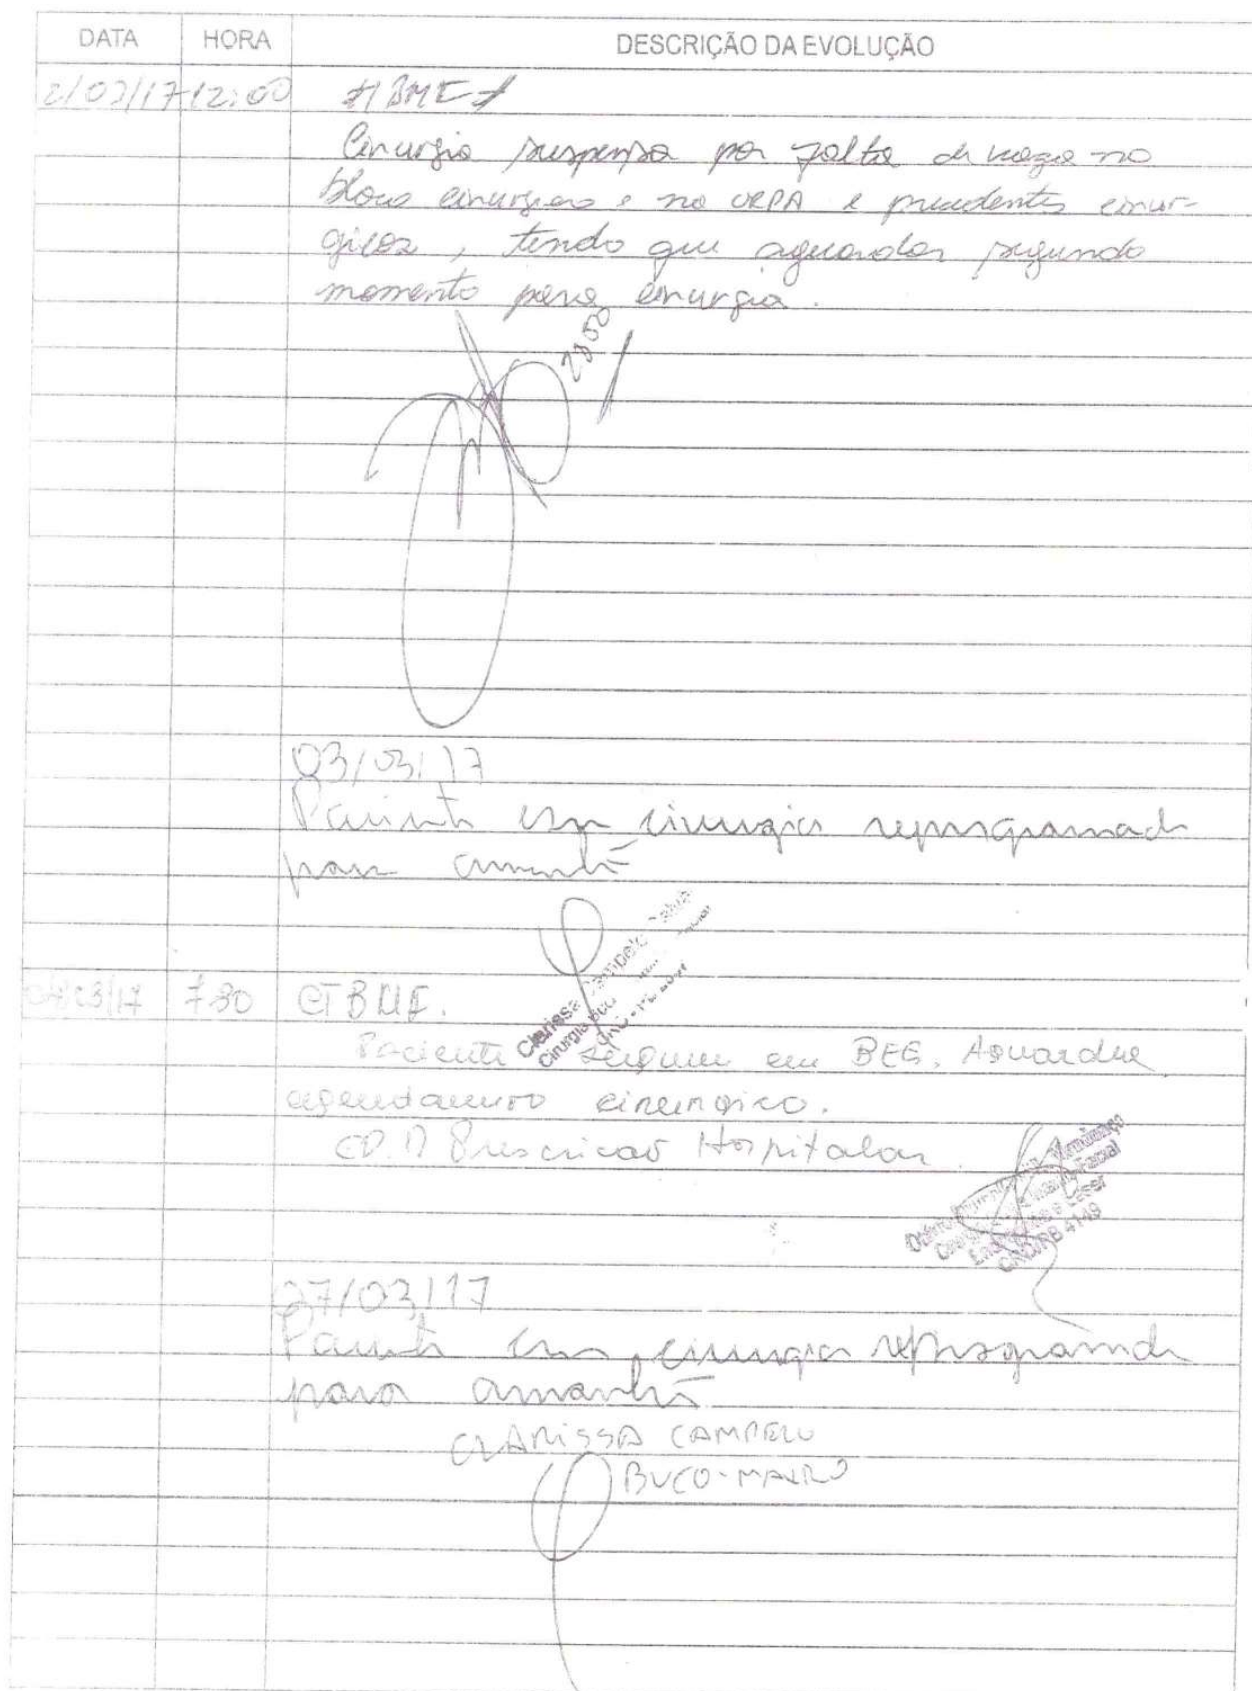 DATA HORA DESCRIÇÃO DA EVOLUÇÃO
2/03/17 12:00 # BMF #
Cirurgia suspensa por falta de vaga no
bloco cirurgico e na URPA e precedentes cirur-
gicos, tendo que aguardar segundo
momento para cirurgia.
2850
03/03/17
Paciente com cirurgia reprogramada
para amanhã
Clarissa
Cirurgia
04/03/17 7:30 CTBMF.
Paciente segue em BEG. Aguardue
agendamento cirurgico.
Prescricao Hospitalar
CRO/PB 4149
27/03/17
Paciente com cirurgia reprogramada
para amanhã
CLARISSA CAMPELO
BUCO-MAXILO